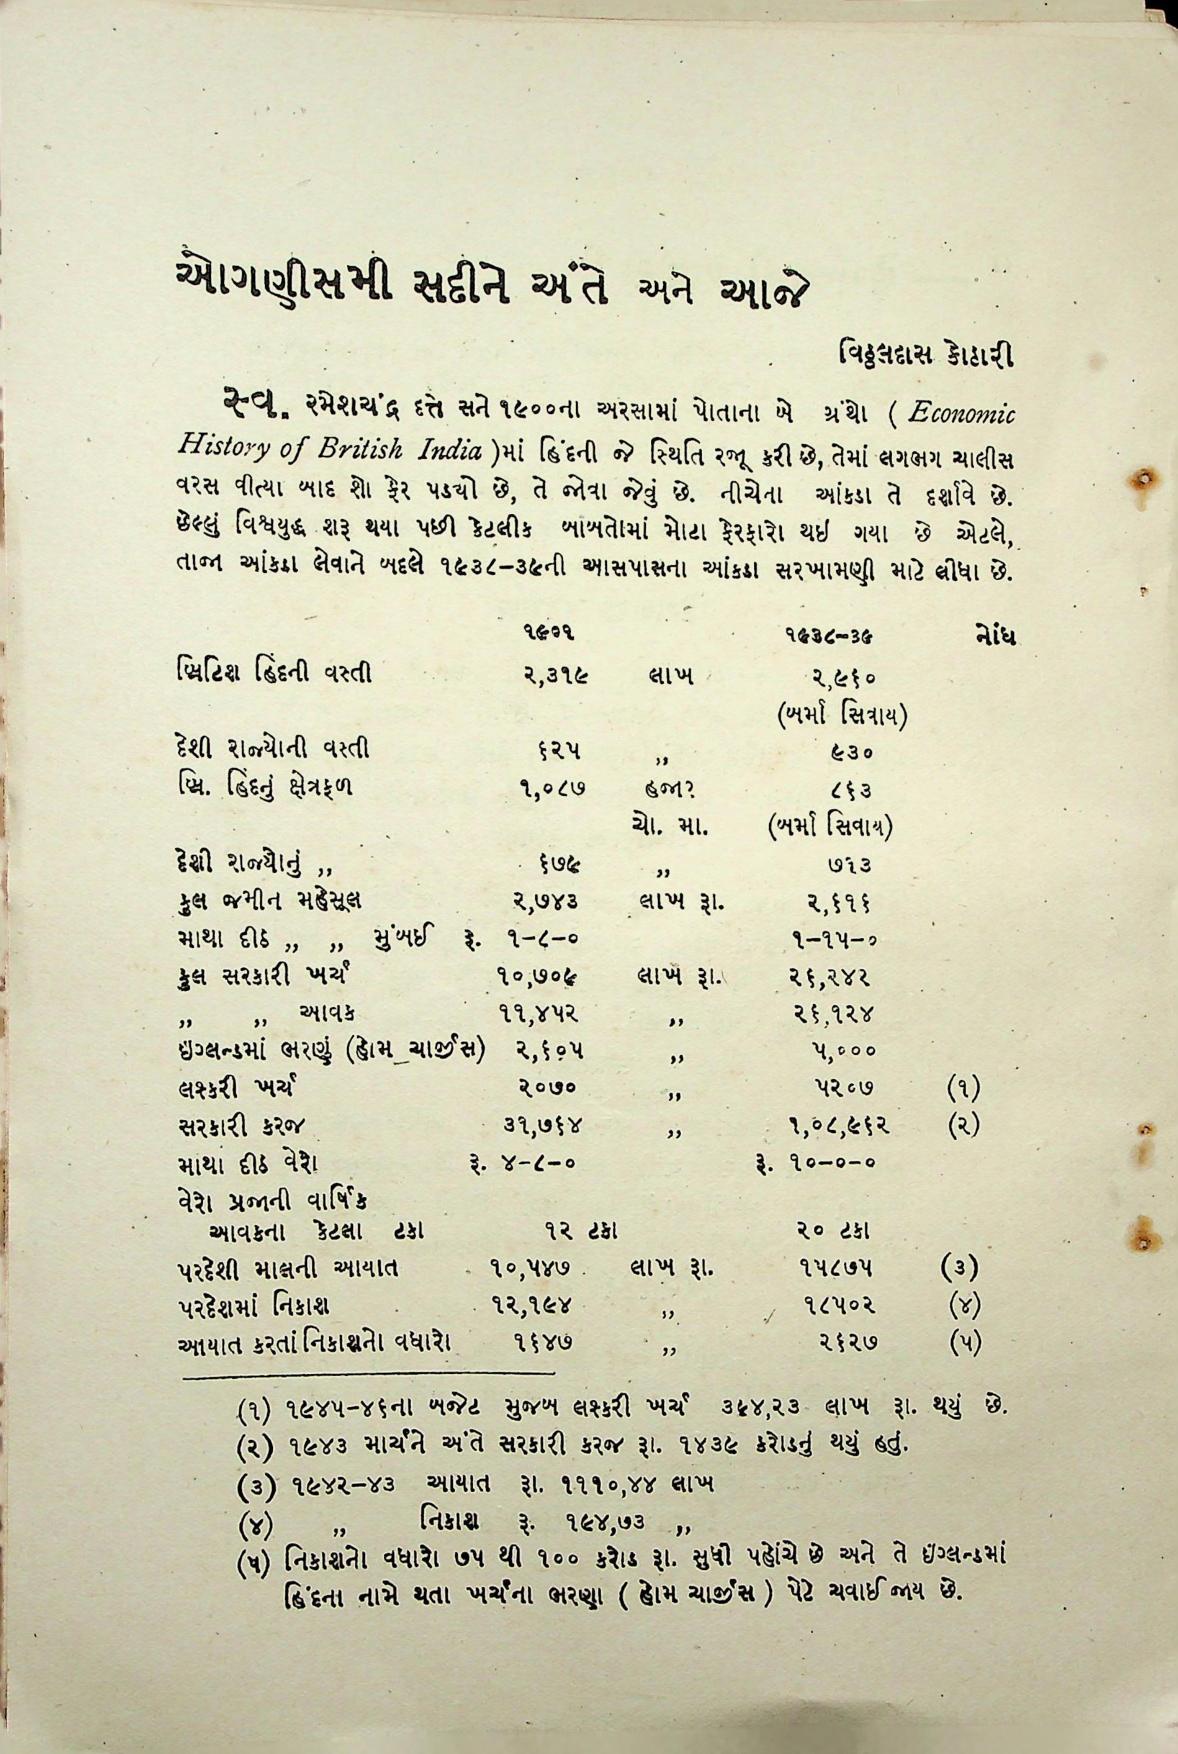 ઓગણીસમી સદીને અંતે અને આજે
વિઠ્ઠલદાસ કોઠારી
સ્વ. રમેશચંદ્ર દત્તે સને ૧૯૦૦ના અરસામાં પોતાના બે ગ્રંથો ( Economic
History of British India )માં હિંદની જે સ્થિતિ રજૂ કરી છે, તેમાં લગભગ ચાલીસ
વરસ વીત્યા બાદ શો ફેર પડ્યો છે, તે જોવા જેવું છે. નીચેના આંકડા તે દર્શાવે છે.
છેલ્લું વિશ્વયુદ્ધ શરૂ થયા પછી કેટલીક બાબતોમાં મોટા ફેરફારો થઇ ગયા છે એટલે,
તાજા આંકડા લેવાને બદલે ૧૯૩૮–૩૯ની આસપાસના આંકડા સરખામણી માટે લીધા છે.
૧૯૦૧ ૧૯૩૮–૩૯ નોંધ
બ્રિટિશ હિંદની વસ્તી ૨,૩૧૯ લાખ ૨,૯૬૦
(બર્મા સિવાય)
દેશી રાજ્યોની વસ્તી ૬૨૫ ,, ૯૩૦
બ્રિ. હિંદનું ક્ષેત્રફળ ૧,૦૮૭ હજાર ૮૬૩
ચો. મા. (બર્મા સિવાય)
દેશી રાજ્યોનું ,, ૬૭૯ ,, ૭૧૩
કુલ જમીન મહેસૂલ ૨,૭૪૩ લાખ રૂા. ૨,૬૧૬
માથા દીઠ ,, ,, મુંબઈ રૂ. ૧–૮–૦ ૧–૧૫–૦
કુલ સરકારી ખર્ચ ૧૦,૭૦૯ લાખ રૂા. ૨૬,૨૪૨
,, ,, આવક ૧૧,૪૫૨ ,, ૨૬,૧૨૪
ઇંગ્લન્ડમાં ભરણું (હોમ ચાર્જીસ) ૨,૬૦૫ ,, ૫,૦૦૦
લશ્કરી ખર્ચ ૨૦૭૦ ,, ૫૨૦૭ (૧)
સરકારી કરજ ૩૧,૭૬૪ ,, ૧,૦૮,૯૬૨ (૨)
માથા દીઠ વેરો રૂ. ૪–૮–૦ રૂ. ૧૦–૦–૦
વેરો પ્રજાની વાર્ષિક
આવકના કેટલા ટકા ૧૨ ટકા ૨૦ ટકા
પરદેશી માલની આયાત ૧૦,૫૪૭ લાખ રૂા. ૧૫૮૭૫ (૩)
પરદેશમાં નિકાશ ૧૨,૧૯૪ ,, ૧૮૫૦૨ (૪)
આયાત કરતાં નિકાશનો વધારો ૧૬૪૭ ,, ૨૬૨૭ (૫)
(૧) ૧૯૪૫–૪૬ના બજેટ મુજબ લશ્કરી ખર્ચ ૩૯૪,૨૩ લાખ રૂા. થયું છે.
(૨) ૧૯૪૩ માર્ચને અંતે સરકારી કરજ રૂા. ૧૪૩૯ કરોડનું થયું હતું.
(૩) ૧૯૪૨–૪૩ આયાત રૂા. ૧૧૧૦,૪૪ લાખ
(૪) ,, નિકાશ રૂ. ૧૯૪,૭૩ ,,
(૫) નિકાશનો વધારો ૭૫ થી ૧૦૦ કરોડ રૂા. સુધી પહોંચે છે અને તે ઇંગ્લન્ડમાં
હિંદના નામે થતા ખર્ચના ભરણા ( હોમ ચાર્જીસ ) પેટે ચવાઈ જાય છે.